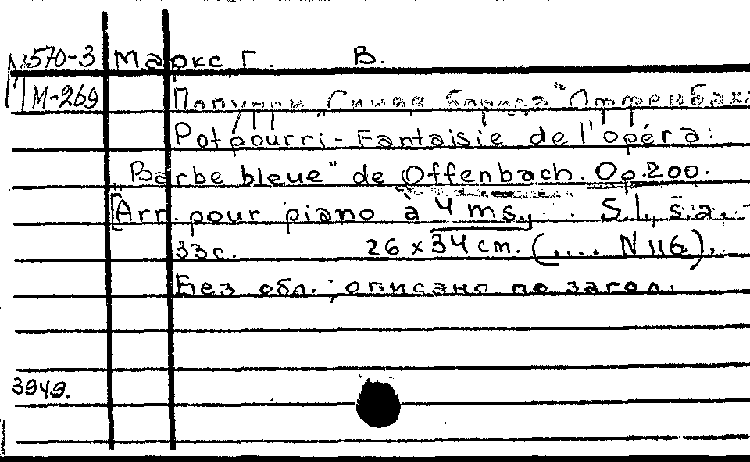 N 570-3 Маркс Г. В.
М-269 Попурри „Синяя борода" Оффенбаха
Potpourri-Fantaisie de l'opéra:
„Barbe bleue" de Offenbach. Op.200.
[Arr. pour piano à 4 ms., S.l., s.a.
33 с. 26 x 34 cm. (.... N 116).
Без обл.; описано по загол.
3949.